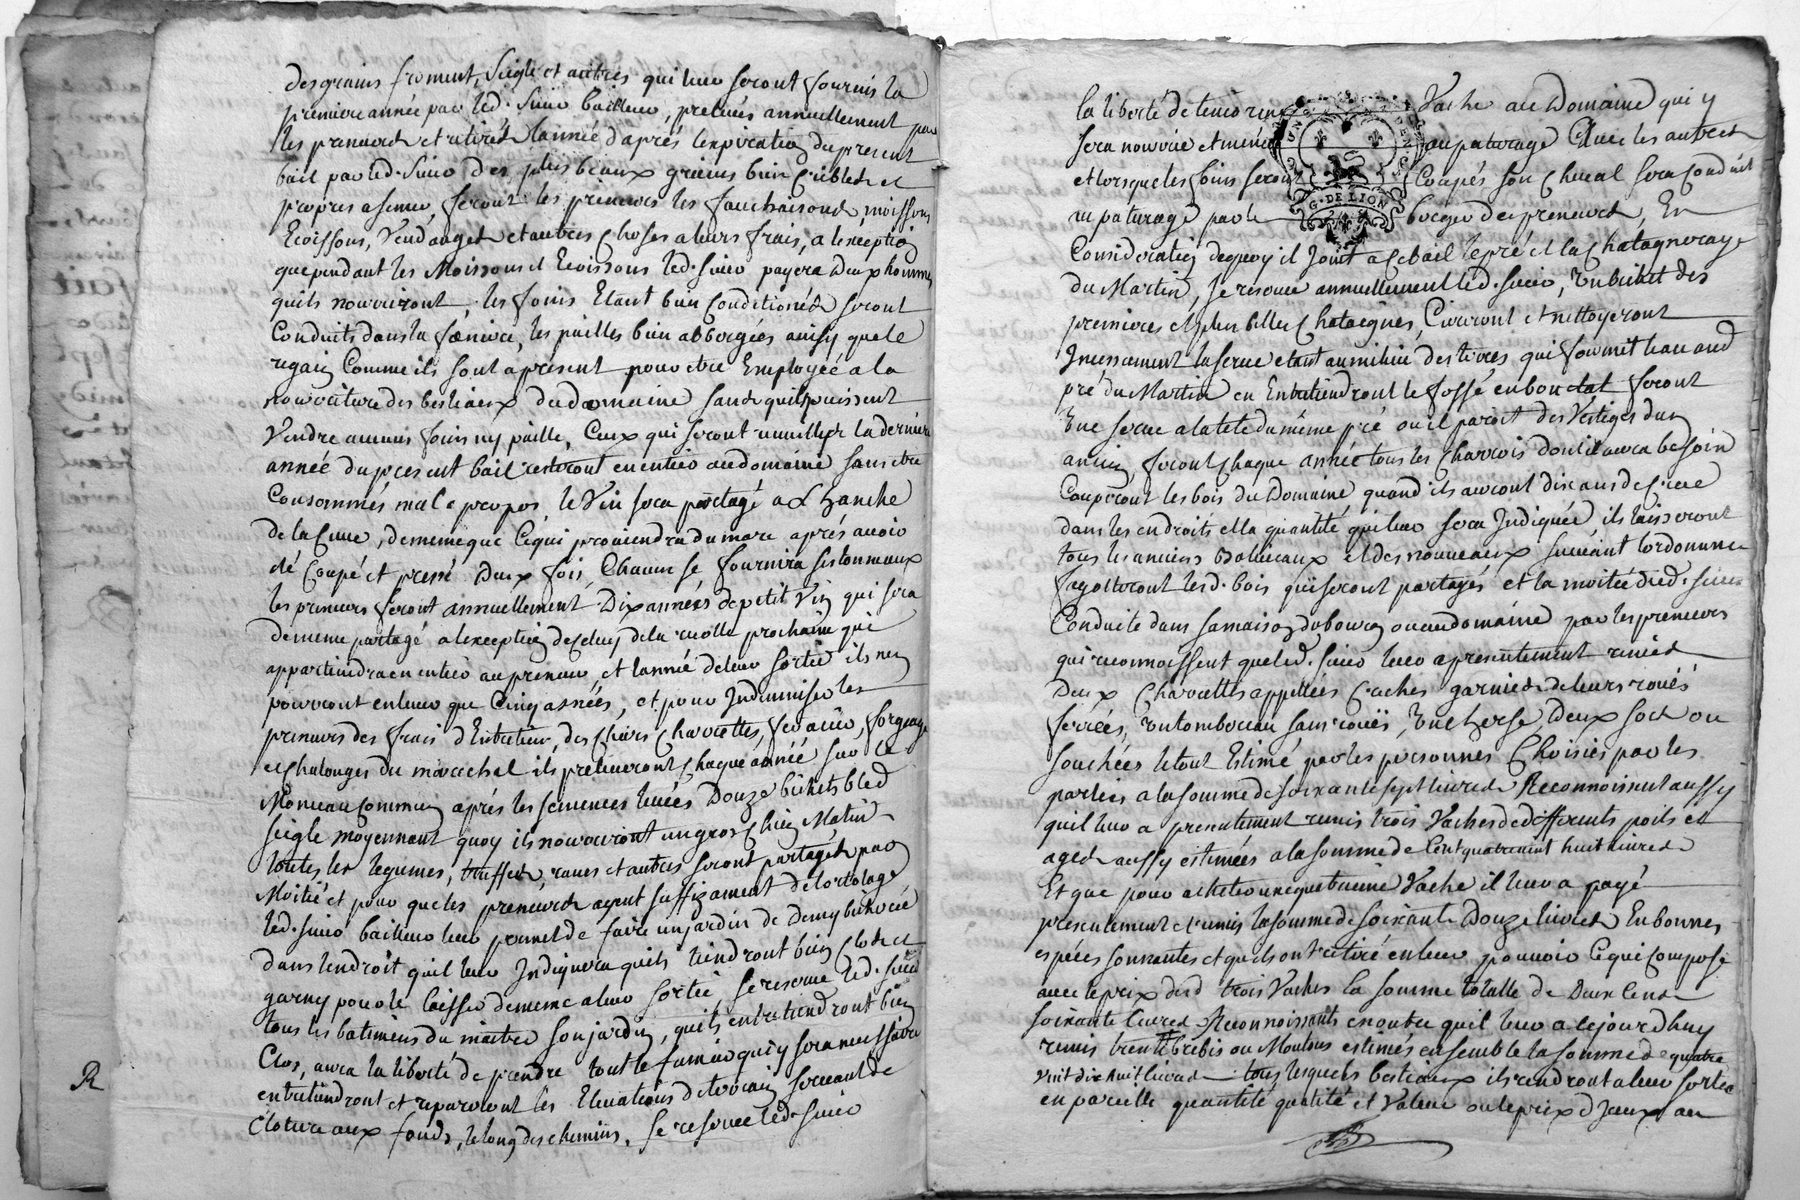 des grains froment, seigle et autres qui leur seront fournis la
premiere année par led. sieur bailleur, prelevés annuellement par
les preneurs et retirés lannée d'aprés lexpiration du present
bail par led. sieur des plus beaux grains bien criblés et
propres a semer, feront les preneurs les fauchaisons moissons
Ecoissons, Vendanges et autres choses a leurs frais, a léxception
que pendant les Moissons et Ecoissons led. sieur payera deux hommes
quils nourriront, les foins Etant bien conditionés seront
Conduits dans la feniere, les pailles bien abbergées ainsy que le
regain Comme ils sont apresent pour etre Employée a la
nourriture des bestiaux du domaine sans quils puissent
Vendre aucuns foins ny paille, Ceux qui seront recueillys la derniere
année du present bail resteront en entier au domaine sans etre
Consommés mal a propos, le Vin sera partagé a L'hanche
de la Cuve, de meme que Cequi proviendra du marc aprés avoir
eté Coupé et pressé Deux fois, Chacun se fournira ses tonneaux
les preneurs feront annuellement Dix annéés de petit Vin qui sera
de meme partagé a lexception de Celuy de la recolte prochaine qui
appartiendra en entier au preneur, et lannée de leur sortie ils n'en
pourront enlever que Cinq asnées, et pour Indemniser les
preneurs des frais d'Entretien, des Chars Charrettes, feraure, forgeage
et chalonges du marechal ils preleveront Chaque année sur le
Monceau Commun aprés les semences levées Douze bichets bled
seigle moyennant quoy ils nourriront un gros Chien Matin
toutes les legumes, truffes, raves et autres seront partagés par
Moitié et pour que les preneurs ayent suffizament de lortolage
led. sieur bailleur leur promet de faire un jardin de demy bicherée
dans lendroit quil leur Indiquera quils tiendront bien Clos et
garny pour le laisser de meme a leur sortie se reserve led. sieur
tous les batimens du maitre son jardin, quils entretiendront bien
Clos, aura la liberté de prendre tout le fumier qui y sera necessaire
entretiendront et repareront les Elevations de terrain servant de
Cloture aux fonds, le long des chemins. se reserve led. sieur
R
la liberté de tenir une Vache au Domaine qui y
sera nourrie et menée au paturage avec les autres
et lorsque les foins seront Coupés son Cheval sera Conduit
au paturage par le berger des preneurs, En
Consideration dequoy il Joint a Cebail le pré et la Chatagneraye
du Martin, se reserve annuellement led. sieur, un bichet des
premieres et plus belles Chataignes, Cureront et nettoyeront
Incessament la serve etant au milieu des terres qui fournit leau aud.
pré du Martin en Entretiendront le fossé en bon etat feront
Une serve a la tete du même pré ou il paroit des Vestiges d'un
ancien feront Chaque année tous les Charrois dont il aura besoin
Couperont les bois du Domaine quand ils auront dix ans de Crue
dans les endroits et la quantité qui leur sera Indiquée ils laisseront
tous les anciens Baliveaux et des nouveaux suivant lordonnance
fagotteront lesd. bois qui seront partagés et la moitié dud. sieur
Conduite dans sa maison du bourg ou au domaine par les preneurs
qui reconnoissent que led. sieur leur a presentement remis
Deux Charrettes appellées Caches garnies de leurs roués
ferrées, un tombereau sans roués, Une herse, Deux socs ou
souchées le tout Estimé par les personnes Choisies par les
parties a la somme de soixante sept livres Reconnoissent aussy
quil leur a presentement remis trois Vaches de differents poils et
ages aussy estimées a la somme de Cent quatre vingt huit livres
Et que pour acheter une quatrieme Vache il leur a payé
presentement et remis la somme de soixante Douze livres En bonnes
espéces sonnantes et quils ont retiré en leur pouvoir Ce qui Compose
avec le prix desd. trois Vaches la somme totalle de Deux Cens
soixante livres Reconnoissants en outre quil leur a cejourd'huy
remis trente brebis ou Moutons estimés ensemble la somme de quatre
vint dix huit livres tous lesquels bestiaux ils rendront a leur sortie
en pareille quantité qualité et Valeur ou le prix d'Jceux au
G. DE LION